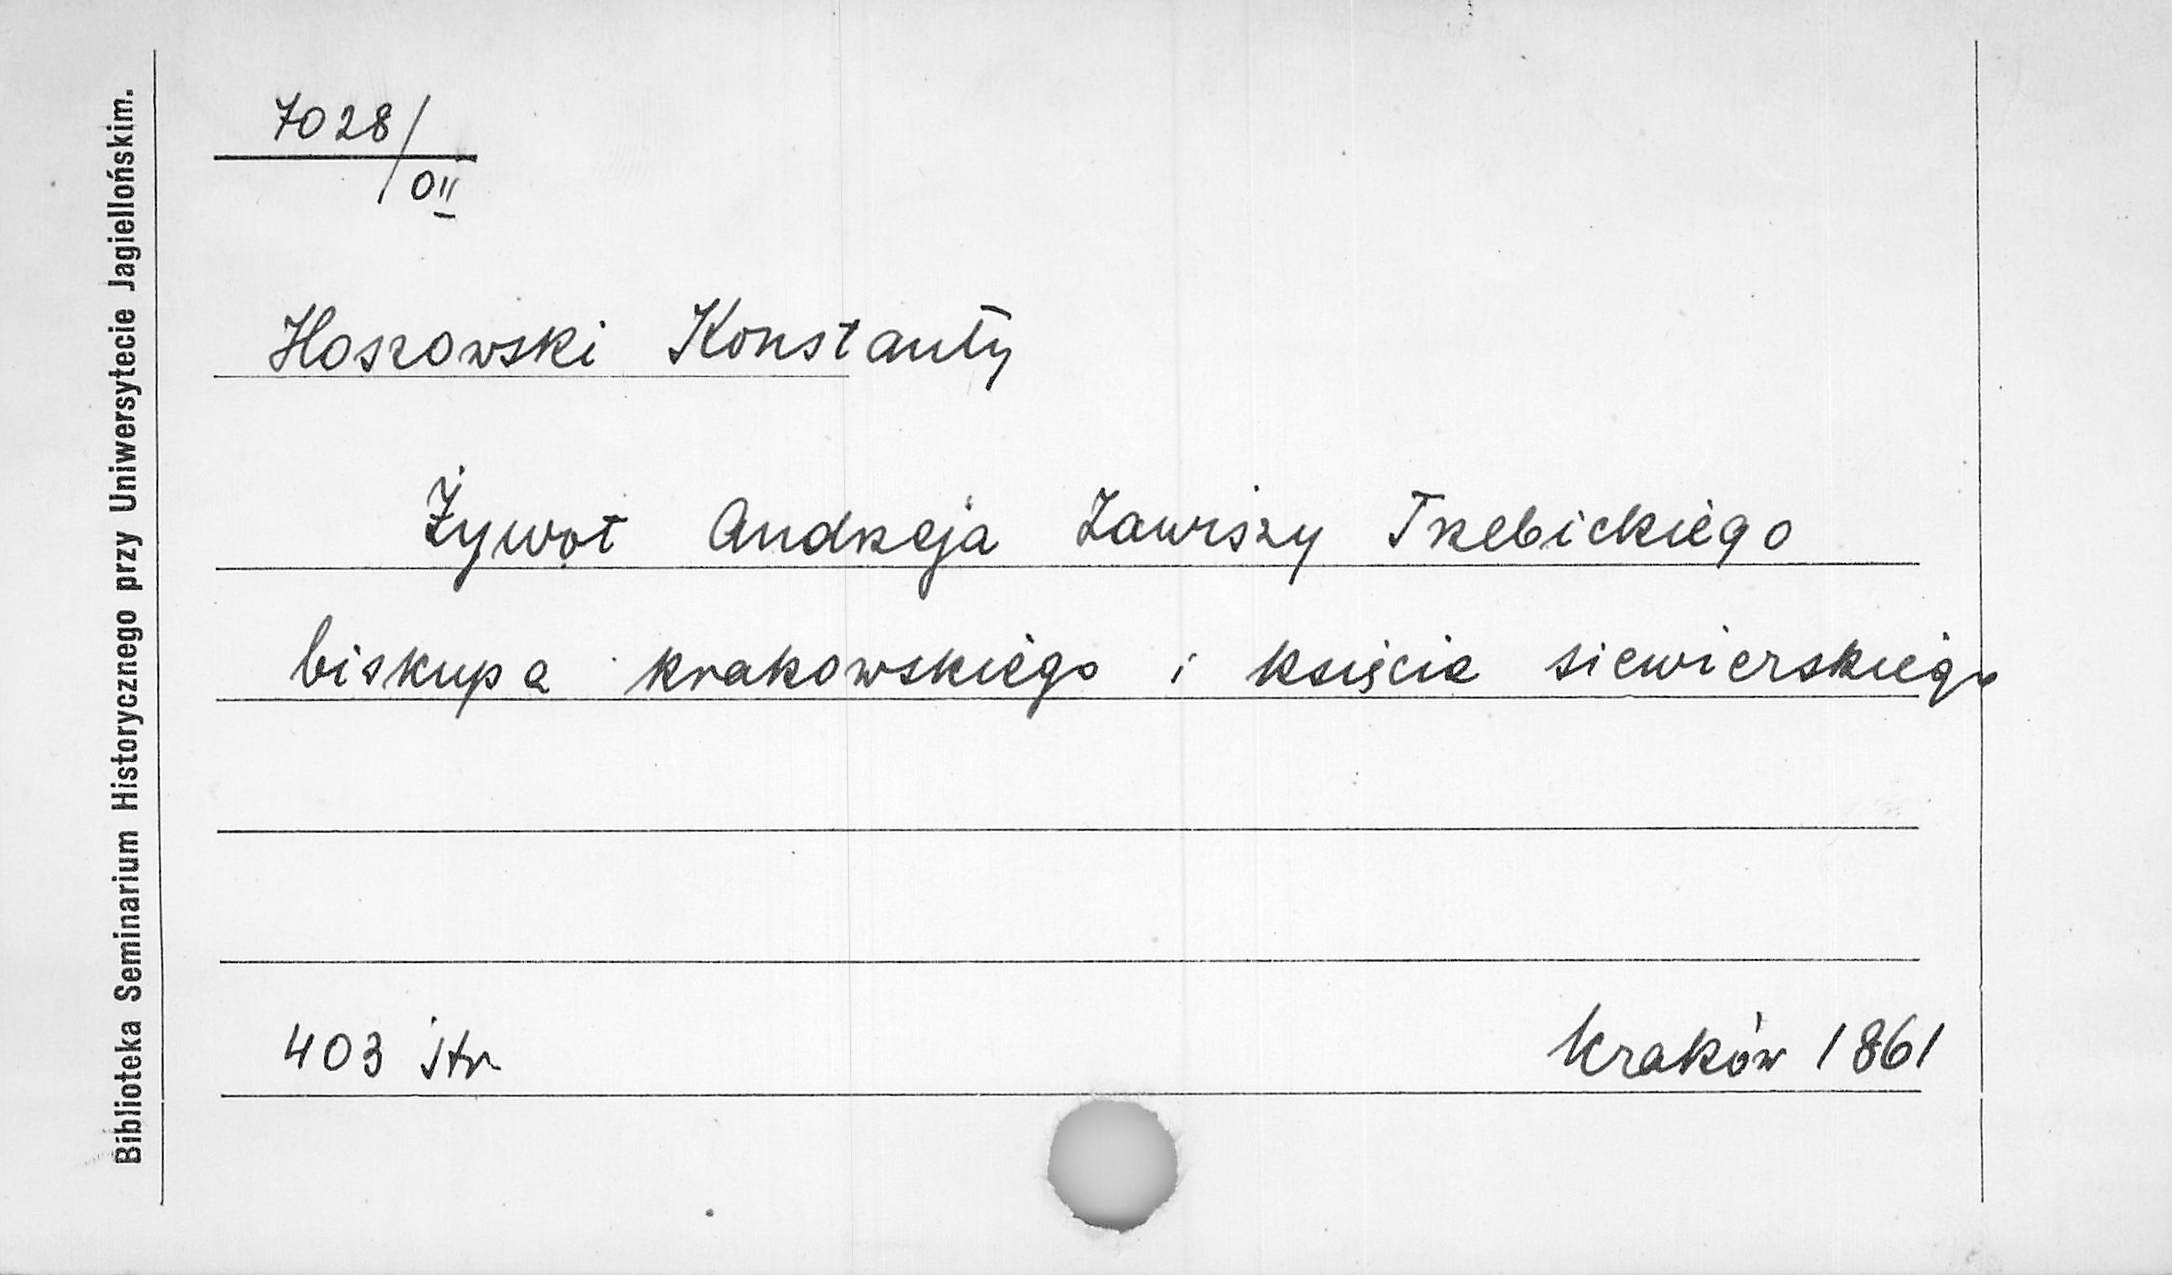 Biblioteka Seminarium Historycznego przy Uniwersytecie Jagiellońskim.
7028/
OII
Hoszowski Konstanty
Żywot Andrzeja Zawiszy Trzebickiego
biskupa krakowskiego i księcia siewierskiego
403 str
Kraków 1861